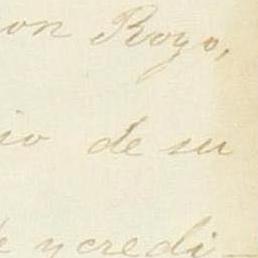 on Rozo,
io de su
y credi-